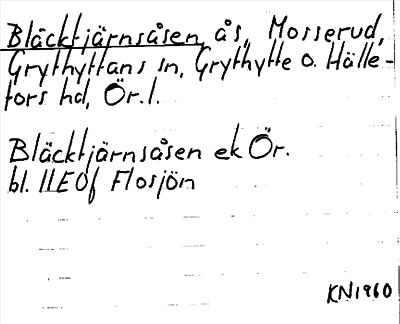 Bläcktjärnsåsen, ås, Mosserud,
Grythyttans sn, Grythytte o. Hälle-
fors hd, Ör. l.
Bläcktjärnsåsen ek Ör.
bl. 11E0f Flosjön
KN1960